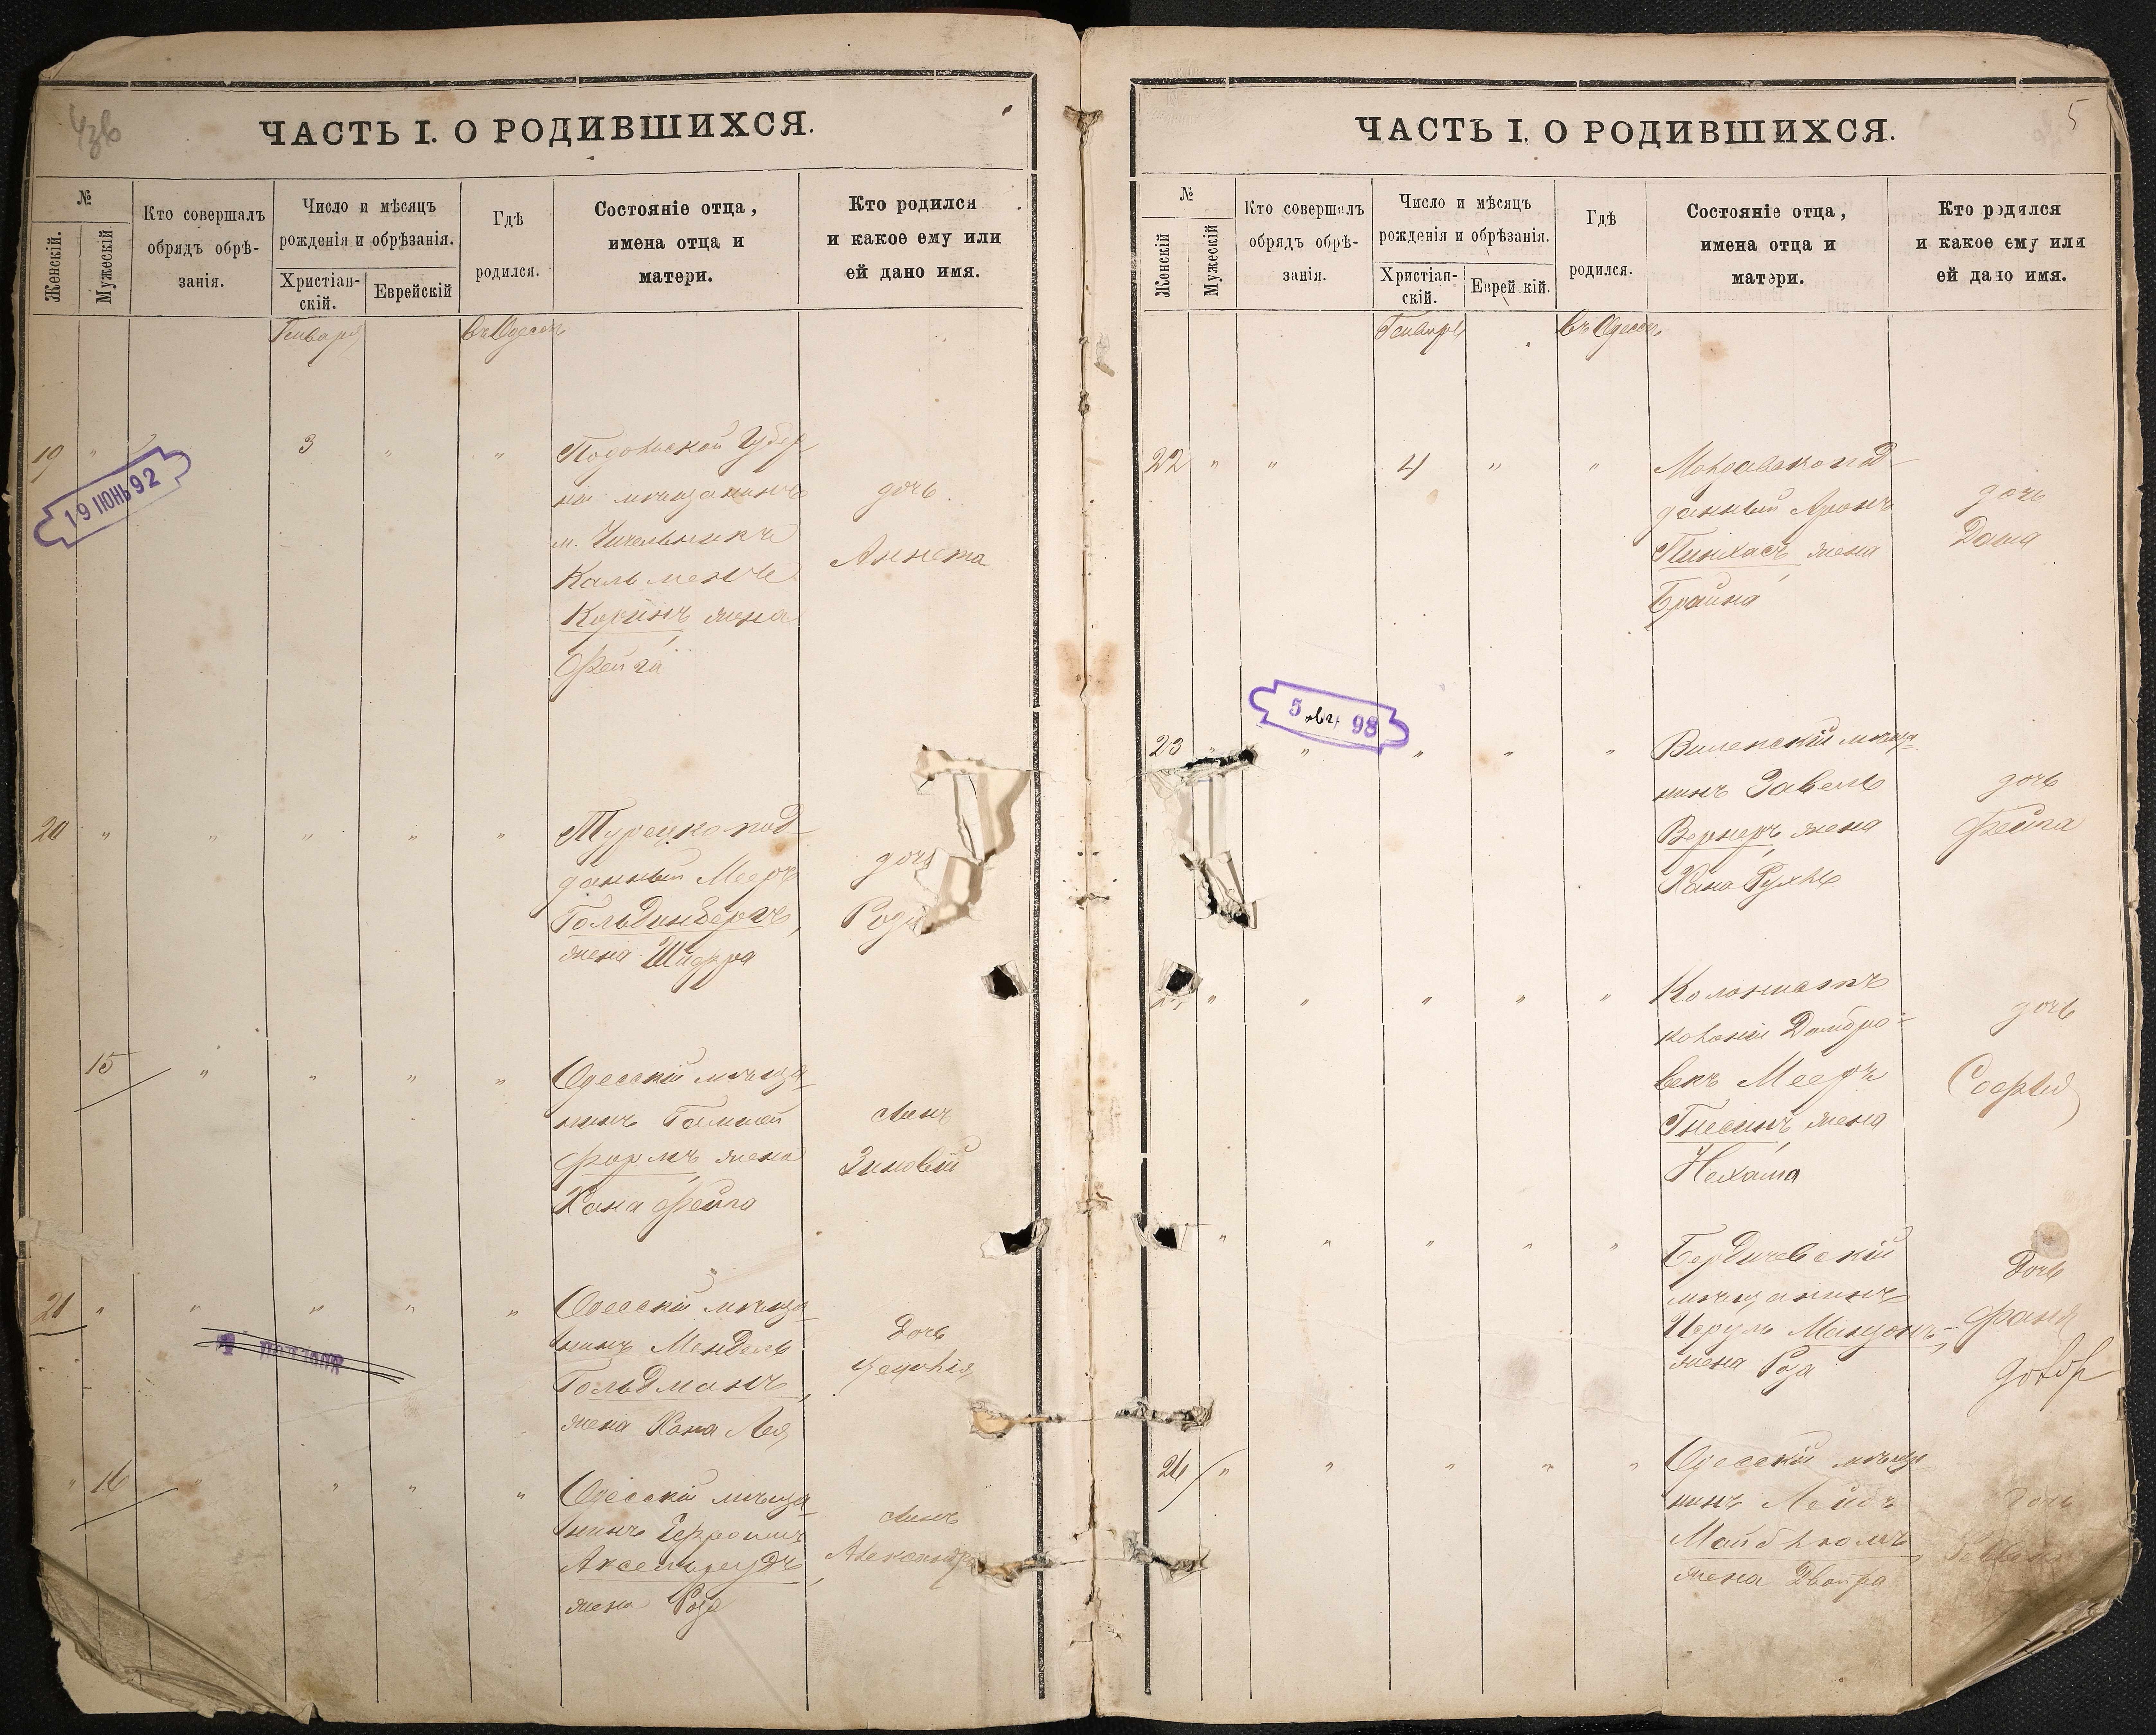 ЧАСТЬ I. О РОДИВШИХСЯ.
№
Женскій.
Мужескій
Кто совершалъ
обрядъ обрѣ-
занія.
Число и мѣсяцъ
рожденія и обрѣзанія.
Христіан-
скій.
Еврейскій
Гдѣ
родился.
Состояніе отца,
имена отца и
матери.
Кто родился
и какое ему или
ей дано имя.
Генваря
въ Одессѣ
19 " 3 " "
19 ІЮНЬ 92
Подольской Губер
ніи мѣщанинъ
м.
Кальменъ
жена
Фейга
дочь
Аннета
20 " " " " "
Турецкоподданный Мееръ
Гольдинбергъ,
жена Шифра
дочь
15 " " " "
Одесскій мѣща-
нинъ
жена
Хана Фейга
сынъ
Зиновій
21 " " " " "
Одесскій мѣща-
нинъ Мендель
Гольдманъ,
жена Хана Лея
дочь
" 16 " " " "
Одесскій мѣща-
нинъ
Аксельрудъ,
жена Роза
сынъ
Александръ
ЧАСТЬ I. О РОДИВШИХСЯ.
5
№
Женскій
Мужескій
Кто совершалъ
обрядъ обрѣ-
занія.
Число и мѣсяцъ
рожденія и обрѣзанія.
Христіан-
скій.
Еврей кій.
Гдѣ
родился.
Состояніе отца,
имена отца и
матери.
Кто родился
и какое ему или
ей дано имя.
Генваря
въ Одессѣ
22 " " 4 " "
Молдавскопод-
данный Аронъ
Пинхасъ жена
Брайна
дочь
Даша
5 авг 98
23 " " " " "
Виленскій мѣща-
нинъ Завель
Вернеръ, жена
Хана Рухль
дочь
Фейга
" " " " "
Колонистъ
колоніи Домбро-
векъ Мееръ
Гнесинъ, жена
Нехама
дочь
Софья
" " " " "
Бердичевскій
мѣщанинъ
жена Роза
дочь
Фаня
26 " " " " "
Одесскій мѣща-
нинъ Лейбъ
жена Двойра
дочь